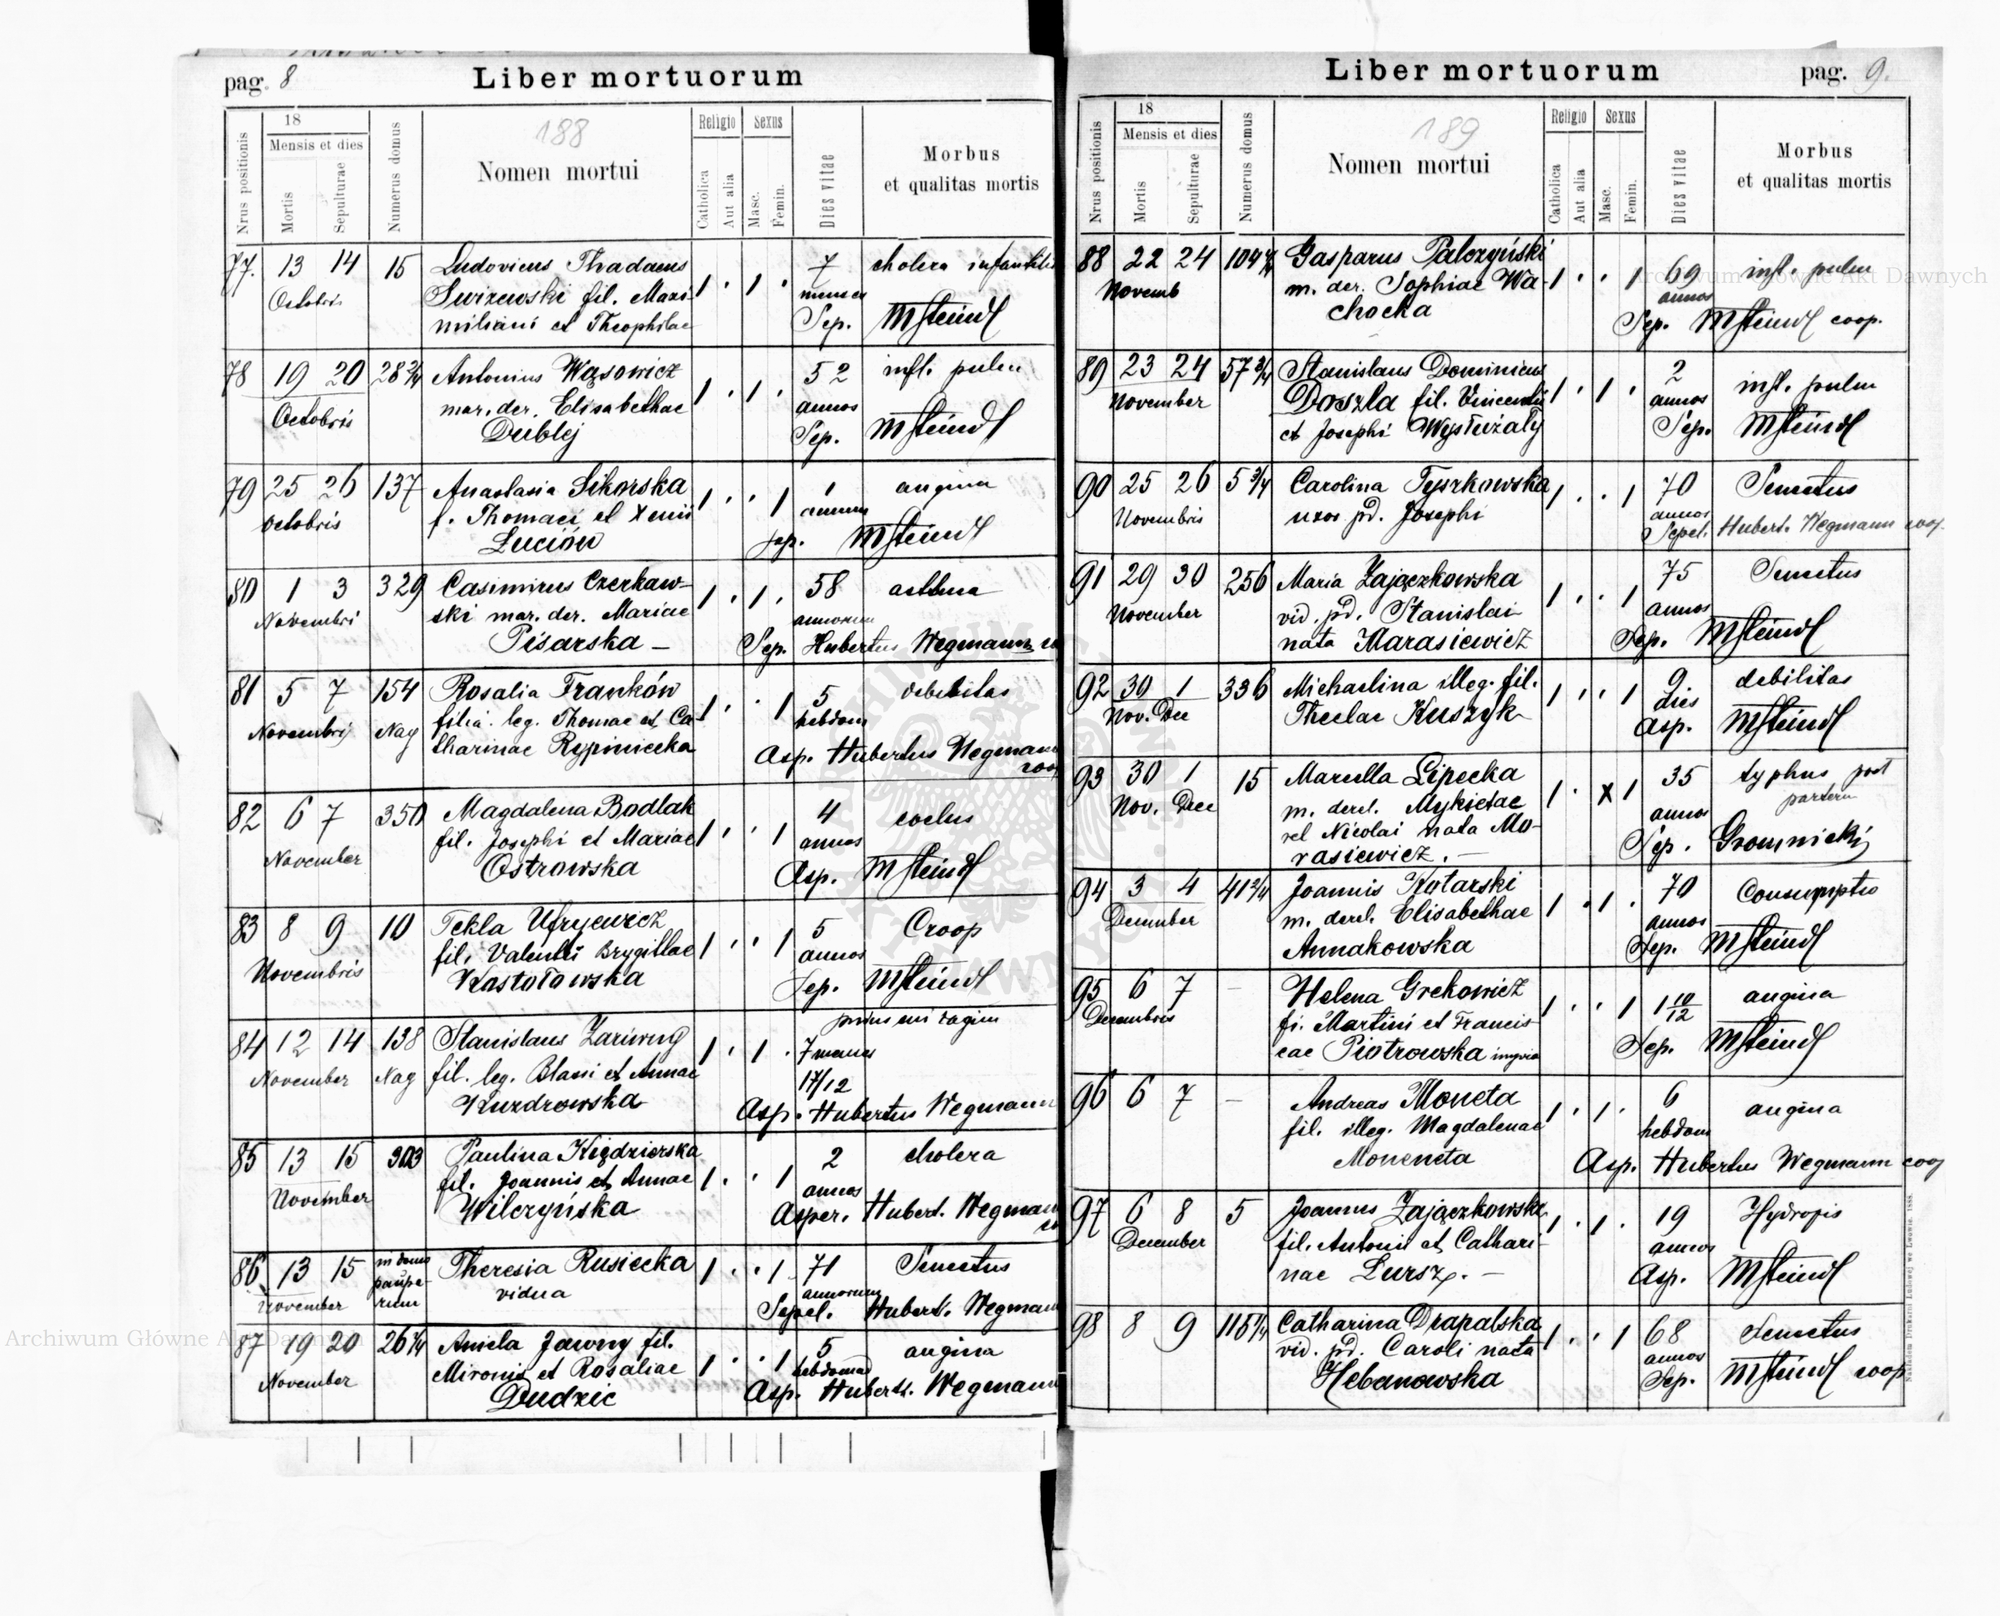 pag. 8 Liber mortuorum
Nrus positionis
18
Mensis et dies
Mortis
Sepulturae
Numerus domus
188
Nomen mortui
Religio
Catholica
Aut alia
Sexus
Masc.
Femin.
Dies vitae
Morbus
et qualitas mortis
77. 13 14 15 Ludovicus Thadaeus 1 . 1 . 7 cholera infantilis
Octobris Swizewski fil. Maxi- menses
miliani et Theophilae Sep. MSteindl
78 19 20 28 2/4 Antonius Wąsowicz 1 . 1 . 52 infl. pulm
Octobris mar. der. Elisabethae annos
Dublej Sep. MSteindl
79 25 26 137 Anastasia Sikorska 1 . . 1 1 angina
Octobris f. Thomaei et Xenii annum
Lucion Sep. MSteindl
80 1 3 329 Casimirus Czerkaw- 1 . 1 . 58 asthma
Novembri ski mar. der. Mariae annorum
Pisarska — Sep. Hubertus Wegmann
81 5 7 154 Rosalia Franków 1 . . 1 5 debilitas
Novembrij Nag filia leg. Thomae et Ca- hebdom
tharinae Rypiniecka Asp. Hubertus Wegmann
coop
82 6 7 350 Magdalena Bodlak 1 . . 1 4
November fil. Josephi et Mariae annos
Ostrowska Asp. MSteindl
83 8 9 10 Tekla Ufryewicz 1 . . 1 5 Croop
Novembris fil. Valenti Brygittae annos
Kastołowska Sep. MSteindl
84 12 14 138 Stanislaus Zariwny 1 . 1 . 7
November Nag fil. leg. Blasii et Annae 17/12
Kuzdrowska Asp. Hubertus Wegmann
85 13 15 303 Paulina Kiędzierska 1 . . 1 2 cholera
November fil. Joannis et Annae annos
Wilczyńska Asper. Hubert. Wegmann
86 13 15 in domo Theresia Rusiecka 1 . . 1 71 Senectus
November paupe- vidua annorum
rum Sepel. Hubert. Wegmann
87 19 20 26 1/4 Aniela Jawny fil. 1 . . 1 5 angina
November Mironis et Rosaliae hebdomad
Dudzic Asp. Hubert. Wegmann
Liber mortuorum pag. 9.
Nrus positionis
18
Mensis et dies
Mortis
Sepulturae
Numerus domus
189
Nomen mortui
Religio
Catholica
Aut alia
Sexus
Masc.
Femin.
Dies vitae
Morbus
et qualitas mortis
88 22 24 104 Gasparus Palczyński 1 . . 1 69 infl. pulm
Novemb m. der. Sophiae Wa- annos
chocka Sep. MSteindl coop.
89 23 24 57 3/4 Stanislaus Dominicus 1 . 1 . 2 infl. pulm
November Doszla fil. Vincentii annos
et Josephi Wystużały Sep. MSteindl
90 25 26 5 3/4 Carolina Tyszkowska 1 . . 1 70 Senectus
Novembris uxor pd. Josephi annos
Sepel. Hubert. Wegmann coop.
91 29 30 256 Maria Zajączkowska 1 . . 1 75 Senectus
November vid. pd. Stanislai annos
nata Marasiewicz Sep. MSteindl
92 30 1 336 Michaelina illeg. fil. 1 . . 1 9 debilitas
Nov. Dec Theclae Kuszyk dies
Asp. MSteindl
93 30 1 15 Marcella Lipecka 1 . x 1 35 typhus post
Nov. Dec m. derel. Mykietae annos partum
vel Nicolai nata Mo- Sep. Gromnicki
rasiewicz. —
94 3 4 41 2/4 Joannis Kotarski 1 . 1 . 70 Consumptio
December m. derel. Elisabethae annos
Annakowska Sep. MSteindl
95 6 7 — Helena Grekowicz 1 . . 1 1 10/12 angina
Decembris fi. Martini et Francis-
cae Piotrowska Sep. MSteindl
96 6 7 — Andreas Moneta 1 . 1 . 6 angina
fil. illeg. Magdalenae hebdom
Moneneta Asp. Hubertus Wegmann coop
97 6 8 5 Joannes Zajączkowska 1 . 1 . 19 Hydropis
December fil. Antonii et Cathari- annos
nae Lursz. — Asp. MSteindl
98 8 9 115 1/4 Catharina Drapalska 1 . . 1 68 Senectus
vid. pd. Caroli nata annos
Hebanowska Sep. MSteindl coop
Nakładem Drukarni Ludowej we Lwowie. 1888.
Archiwum Główne Akt Dawnych
Archiwum Główne Akt Dawnych